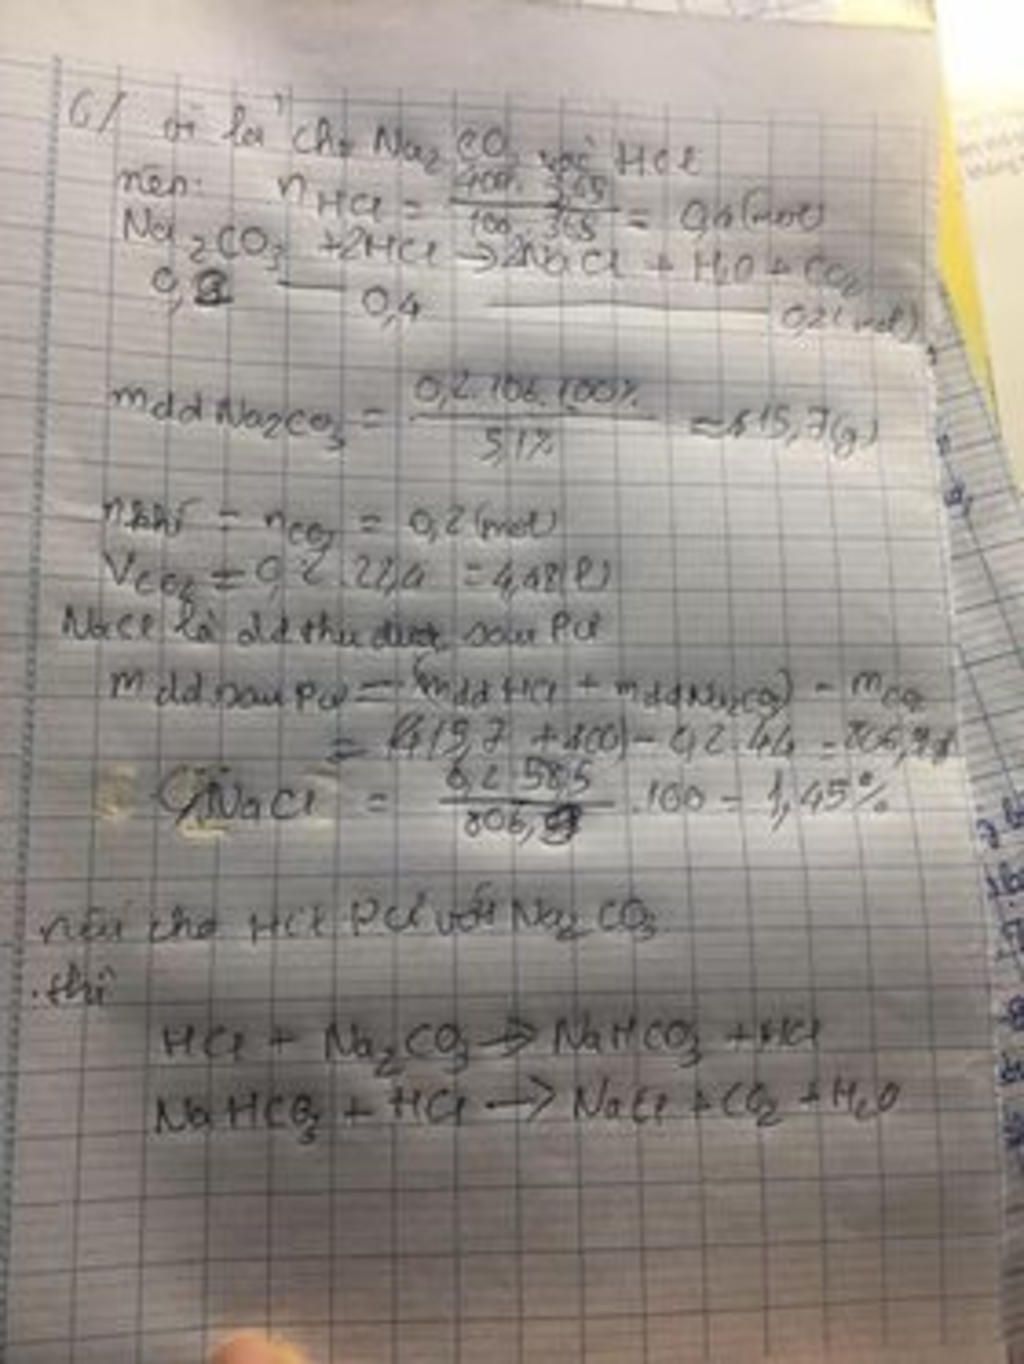 6/ vì là "cho Na2CO3 vào HCl
nên: nHCl = 400. 3,65 / 100. 36,5 = 0,4(mol)
Na2CO3 + 2HCl → 2NaCl + H2O + CO2
0,2 — 0,4 — 0,2(mol)
mddNa2CO3 = 0,2.106.100% / 5,1% ≈ 415,7(g)
nkhí = nCO2 = 0,2(mol)
VCO2 = 0,2.22,4 = 4,48(l)
NaCl là dd thu được sau PƯ
mdd sau PƯ = (mddHCl + mddNa2CO3) - mCO2
= (415,7 + 400) - 0,2.44 = 806,9g
C%NaCl = 0,2.58,5 / 806,9 .100 = 1,45%
nếu cho HCl PƯ với Na2CO3
thì
HCl + Na2CO3 → NaHCO3 + HCl
NaHCO3 + HCl → NaCl + CO2 + H2O